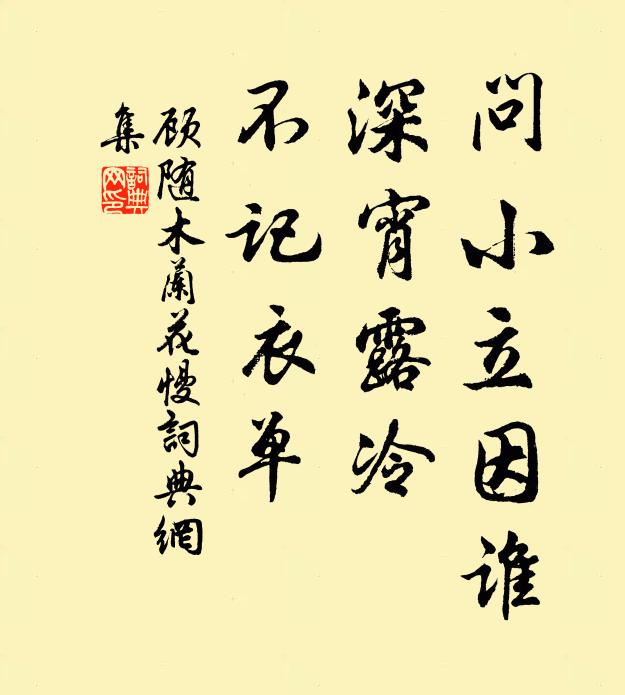 问小立因谁
深宵露冷
不记衣单
顾随木蘭花慢詞典網
集
詞典網印